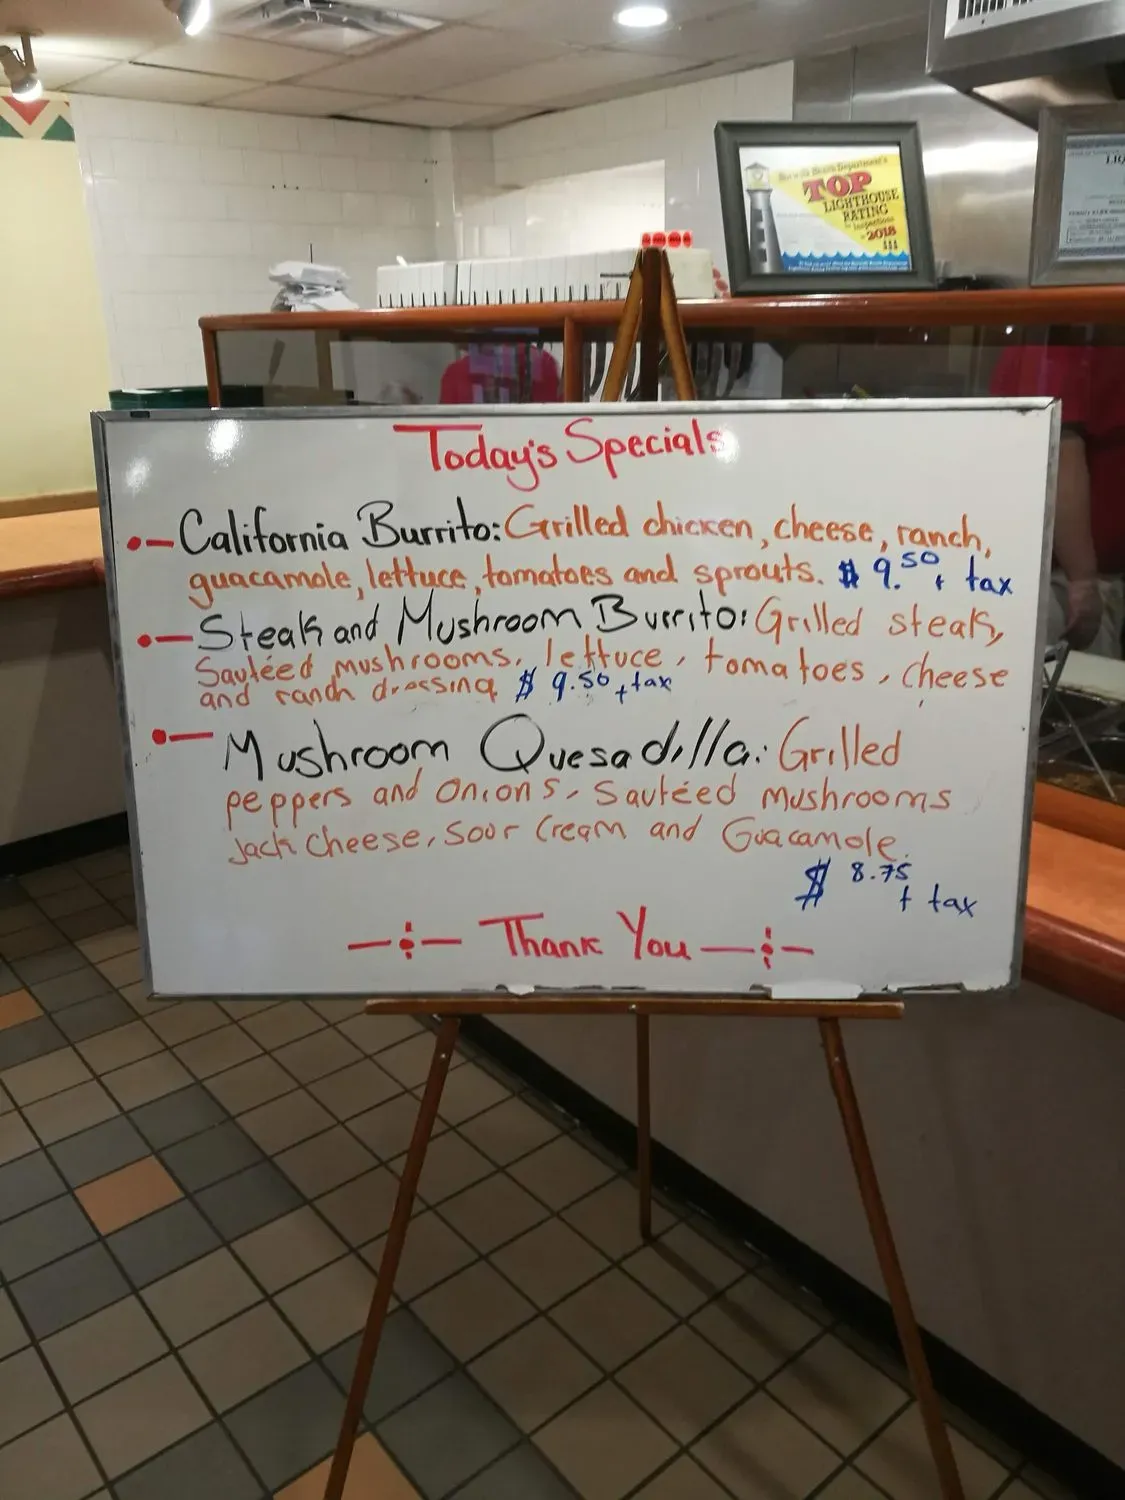 TOP
LIGHTHOUSE
RATING
in Inspections
2018
Today's Specials
California Burrito: Grilled chicken, cheese, ranch,
guacamole, lettuce, tomatoes and sprouts. $ 9.50 + tax
Steak and Mushroom Burrito: Grilled steak,
Sautéed mushrooms, lettuce, tomatoes, cheese
and ranch dressing $ 9.50 + tax
Mushroom Quesadilla: Grilled
peppers and Onions, Sautéed mushrooms
jack cheese, Sour Cream and Guacamole.
$ 8.75
+ tax
Thank You